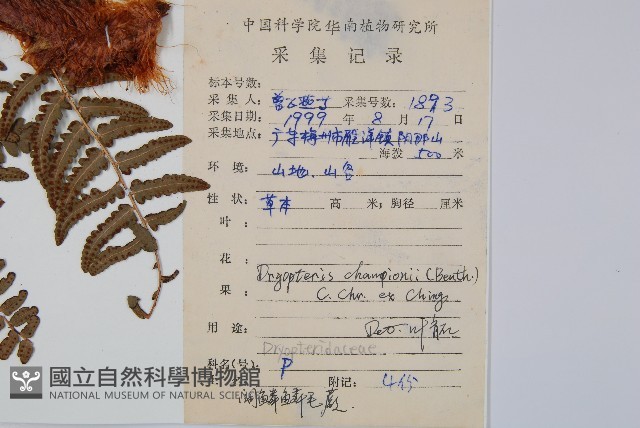 中国科学院华南植物研究所
采集记录
标本号数:
采集人: 曾 采集号数: 1893
采集日期: 1999 年 8 月 17 日
采集地点: 广东梅州市雁洋镇阴那山
海拔 500 米
环境: 山地、山谷
性状: 草本 高 米; 胸径 厘米
叶:
花:
Dryopteris championii (Benth.)
果: C. Chr. ex Ching
用途: Det. 叶
Dryopteridaceae
科名(号): P
附记: 4份
阔鳞鳞毛蕨.
國立自然科學博物館
NATIONAL MUSEUM OF NATURAL SCIENCE